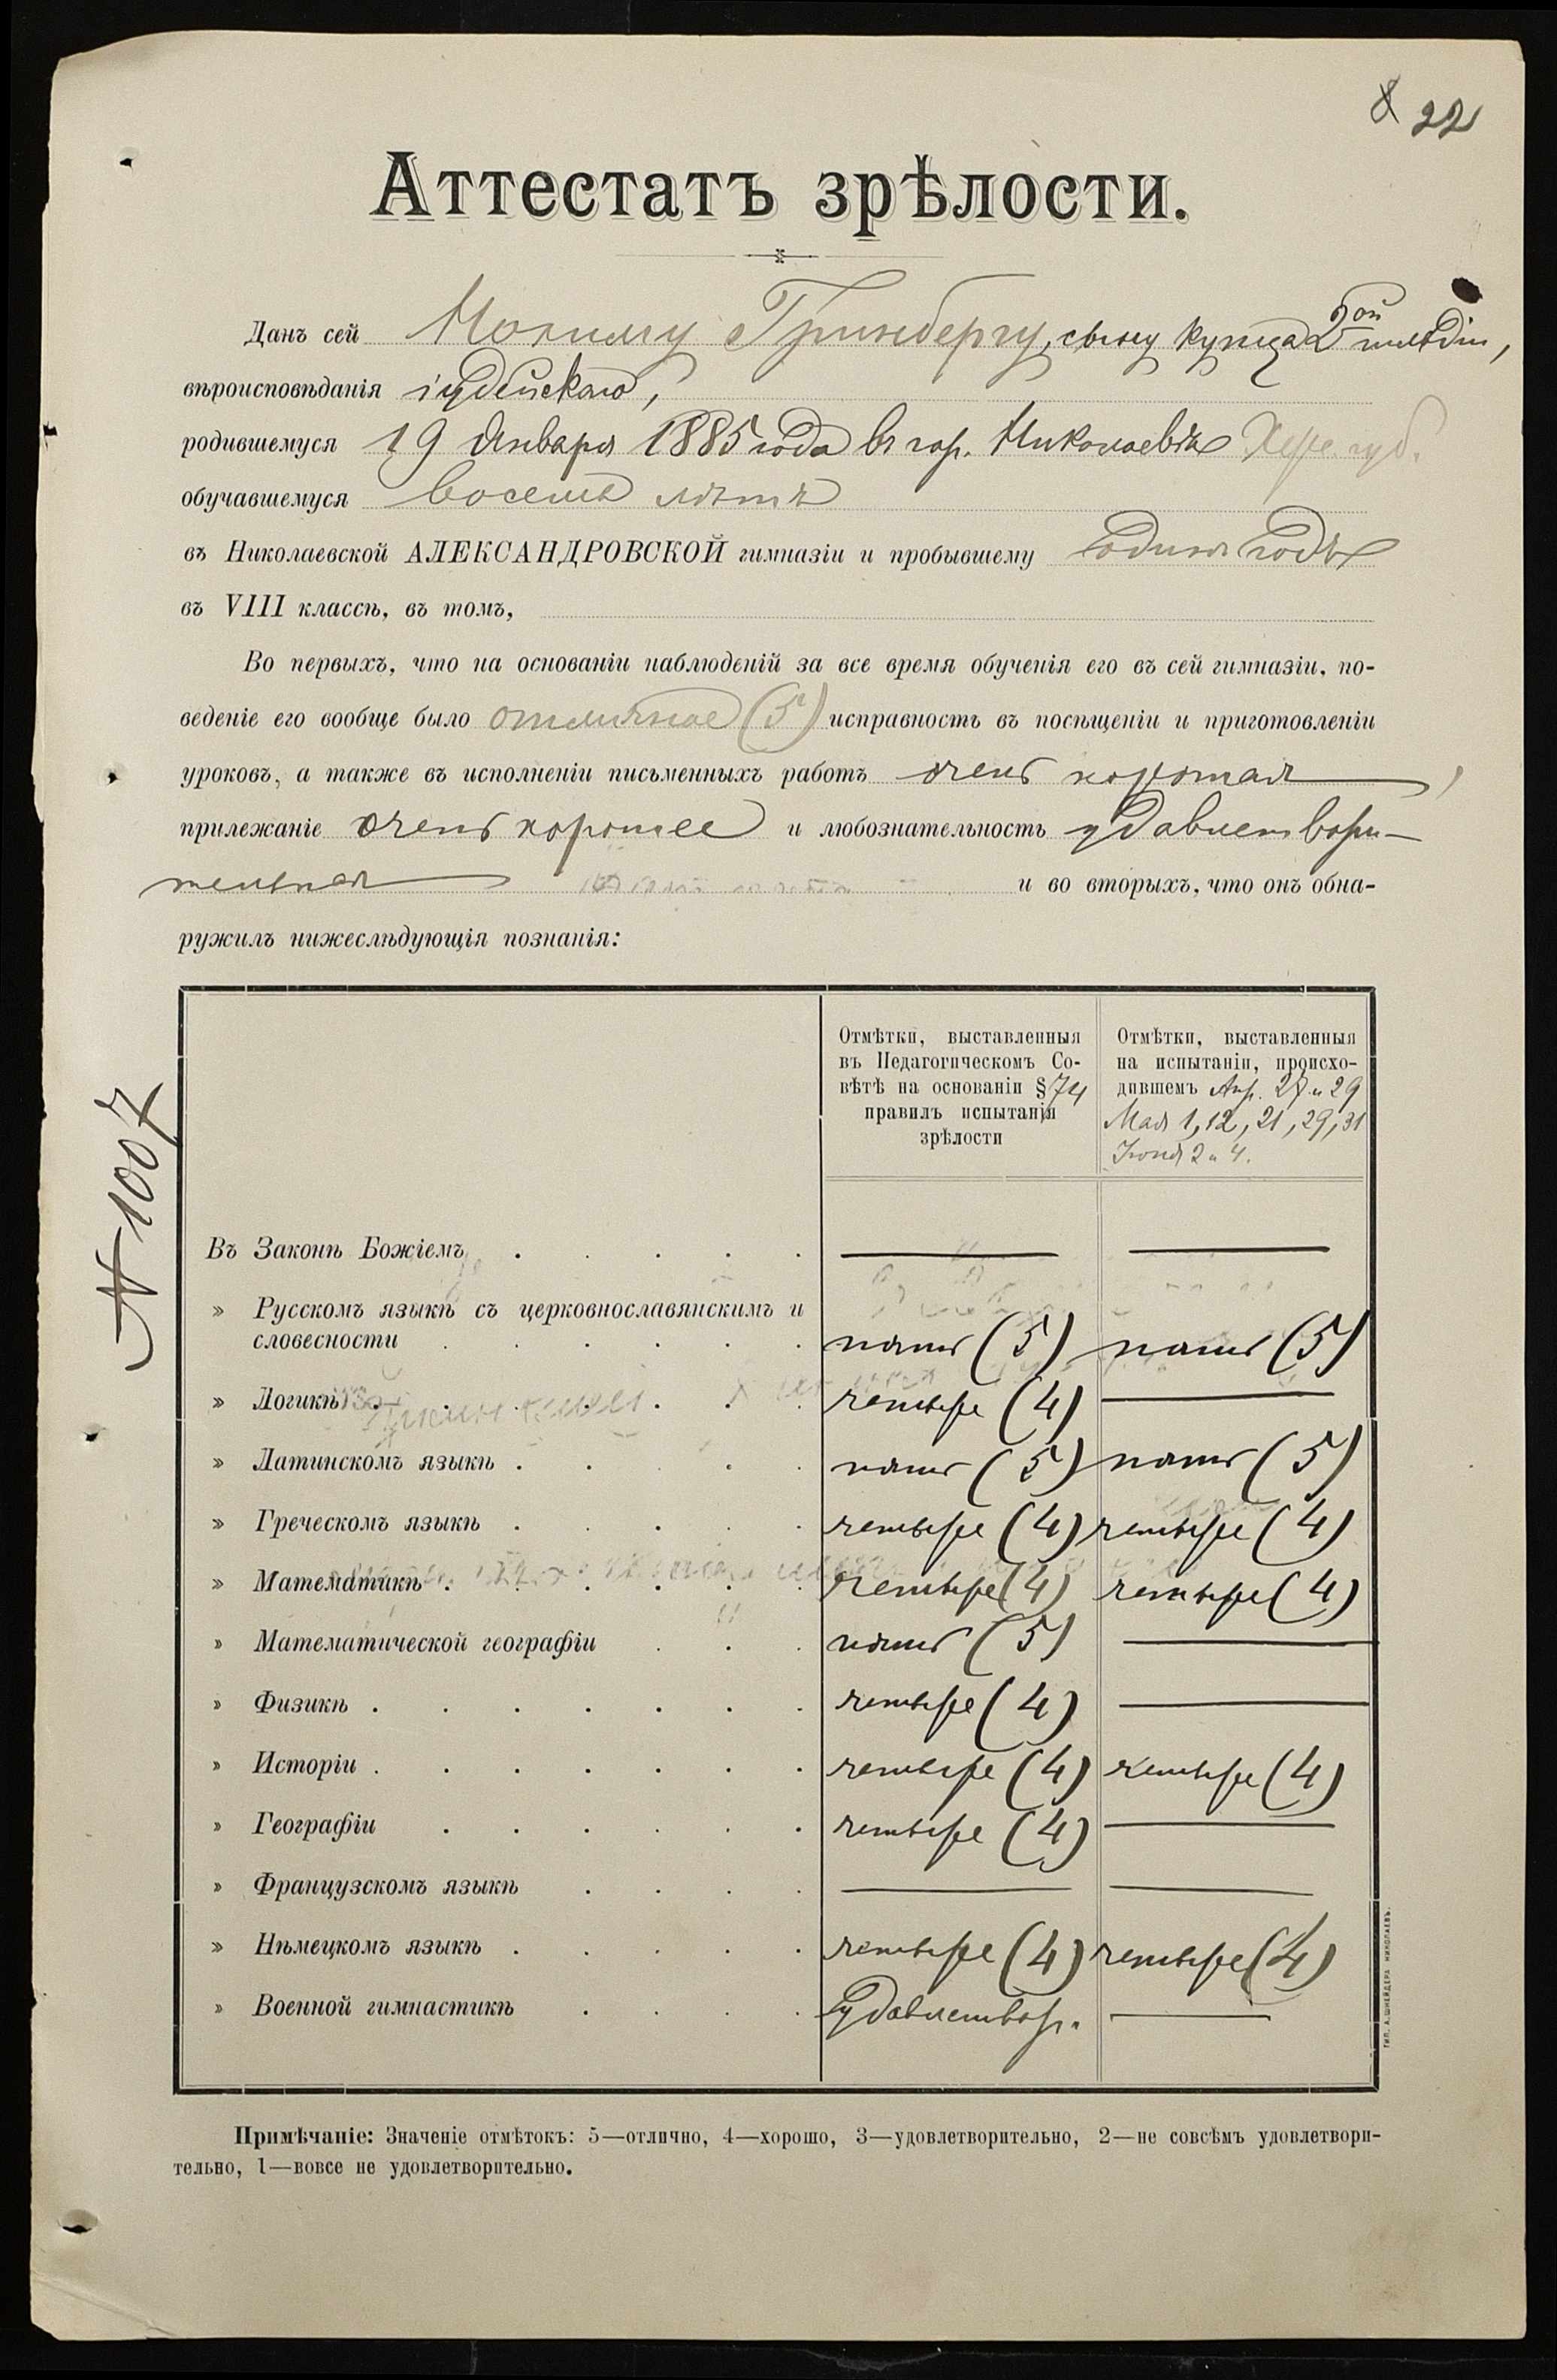 8 22
Аттестатъ зрѣлости.
Данъ сей Гринбергу, сыну купца 2ой гильдіи,
вѣроисповѣданія іудейскаго,
родившемуся 19 Января 1885 года въ гор. Николаевѣ Херс. губ.
обучавшемуся восемь лѣтъ
въ Николаевской АЛЕКСАНДРОВСКОЙ гимназіи и пробывшему одинъ годъ
въ VIII классѣ, въ томъ,
Во первыхъ, что на основаніи наблюденій за все время обученія его въ сей гимназіи, по-
веденіе его вообще было отличное (5) исправность въ посѣщеніи и приготовленіи
уроковъ, а также въ исполненіи письменныхъ работъ очень хорошая,
прилежаніе очень хорошее и любознательность удовлетвори-
тельная и во вторыхъ, что онъ обна-
ружилъ нижеслѣдующія познанія:
Отмѣтки, выставленныя
въ Педагогическомъ Со-
вѣтѣ на основаніи § 74
правилъ испытанія
зрѣлости
Отмѣтки, выставленныя
на испытаніи, происхо-
дившемъ Апр. 27 и 29
Мая 1, 12, 21, 29, 31
Іюня 2 и 4.
№ 1007
Въ Законѣ Божіемъ
» Русскомъ языкѣ съ церковнославянскимъ и
словесности пять (5) пять (5)
» Логикѣ четыре (4)
» Латинскомъ языкѣ пять (5) пять (5)
» Греческомъ языкѣ четыре (4) четыре (4)
» Математикѣ четыре (4) четыре (4)
» Математической географіи пять (5)
» Физикѣ четыре (4)
» Исторіи четыре (4) четыре (4)
» Географіи четыре (4)
» Французскомъ языкѣ
» Нѣмецкомъ языкѣ четыре (4) четыре (4)
» Военной гимнастикѣ удовлетвор.
ТИП. А. ШНЕЙДЕРА НИКОЛАЕВЪ.
Примѣчаніе: Значеніе отмѣтокъ: 5—отлично, 4—хорошо, 3—удовлетворительно, 2—не совсѣмъ удовлетвори-
тельно, 1—вовсе не удовлетворительно.